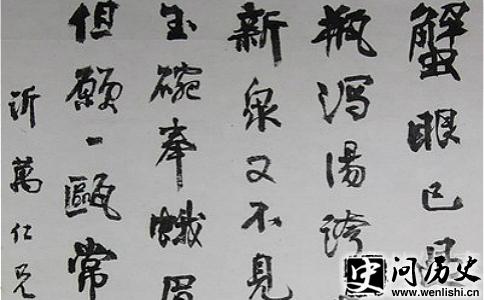 蟹眼已
瓶瀉湯誇
新泉又不見
玉碗奉蛾眉
但願一甌常
沂萬仁兄
史 问历史
www.wenlishi.cn